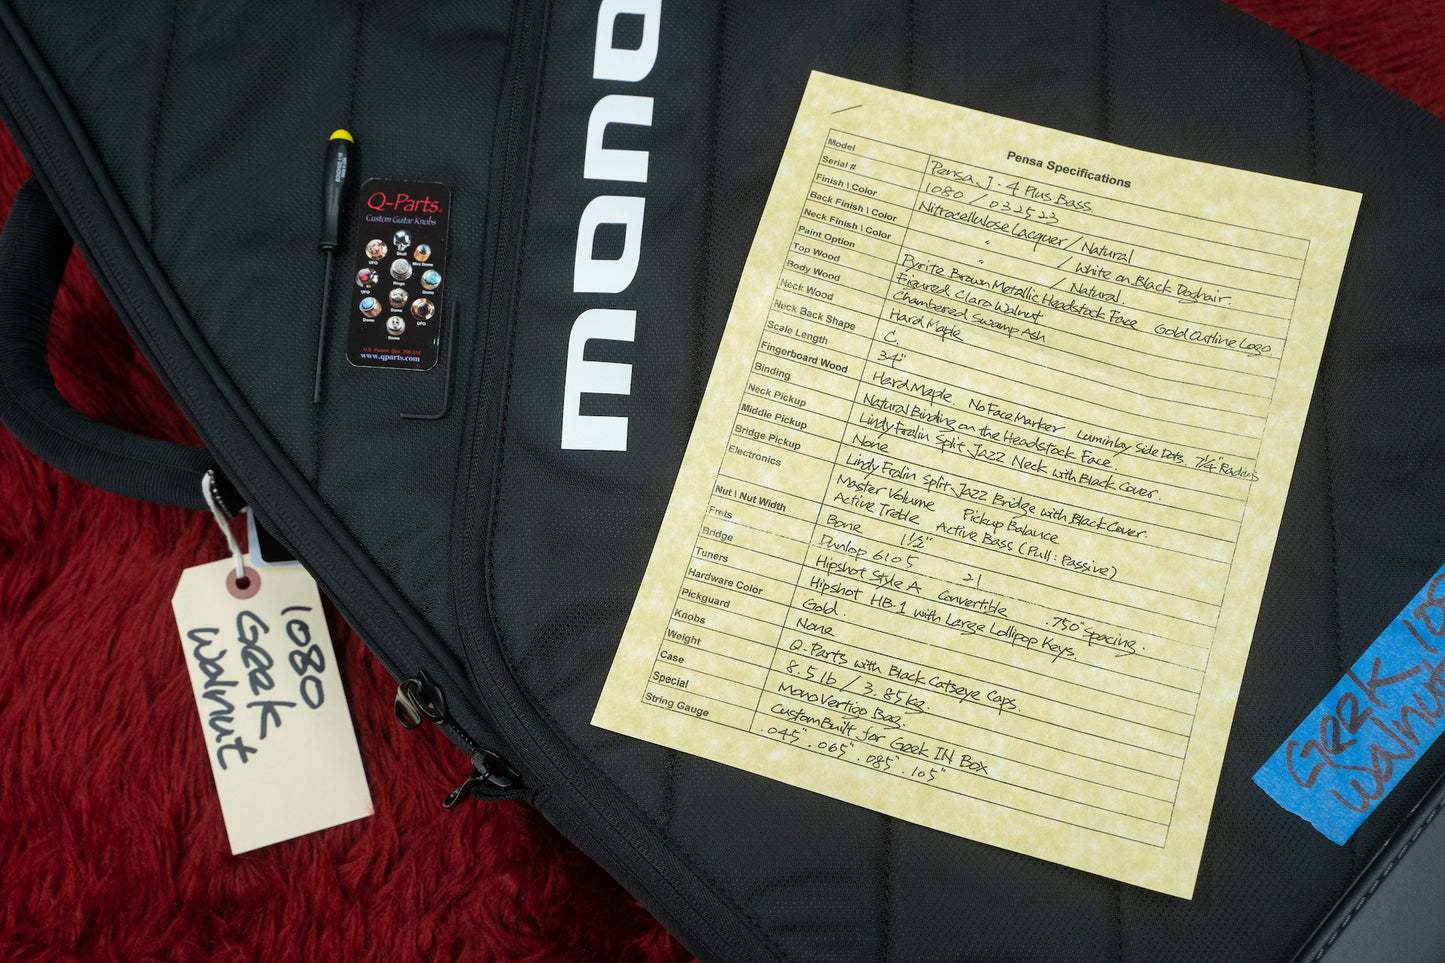 mono
Q-Parts
Custom Guitar Knobs
UFO
Skull
Mini Dome
UFO
Ringo
Dome
Dome
Dome
UFO
Dome
www.qparts.com
1080
Geek
Walnut
Pensa Specifications
Model Pensa J-4 Plus Bass
Serial # 1080 / 032523
Finish \ Color Nitrocellulose Lacquer / Natural
Back Finish \ Color " / White on Black Doghair.
Neck Finish \ Color " / Natural.
Paint Option Pyrite Brown Metallic Headstock Face Gold Outline Logo
Top Wood Figured Claro Walnut
Body Wood Chambered Swamp Ash
Neck Wood Hard Maple
Neck Back Shape C.
Scale Length 34"
Fingerboard Wood Hard Maple. No Face Marker Luminlay Side Dots. 7¼" Radius
Binding Natural Binding on the Headstock Face.
Neck Pickup Lindy Fralin Split Jazz Neck with Black Cover.
Middle Pickup None
Bridge Pickup Lindy Fralin Split Jazz Bridge with Black Cover.
Electronics Master Volume Pickup Balance
Active Treble Active Bass (Pull: Passive)
Nut \ Nut Width Bone 1½"
Frets Dunlop 6105 21
Bridge Hipshot Style A Convertible .750" spacing.
Tuners Hipshot HB-1 with Large Lollipop Keys.
Hardware Color Gold.
Pickguard None
Knobs Q-Parts with Black Catseye Caps.
Weight 8.5 lb / 3.85 kg.
Case Mono Vertigo Bag.
Special Custom Built for Geek IN Box
String Gauge .045" .065" .085" .105"
Geek 108
Walnut